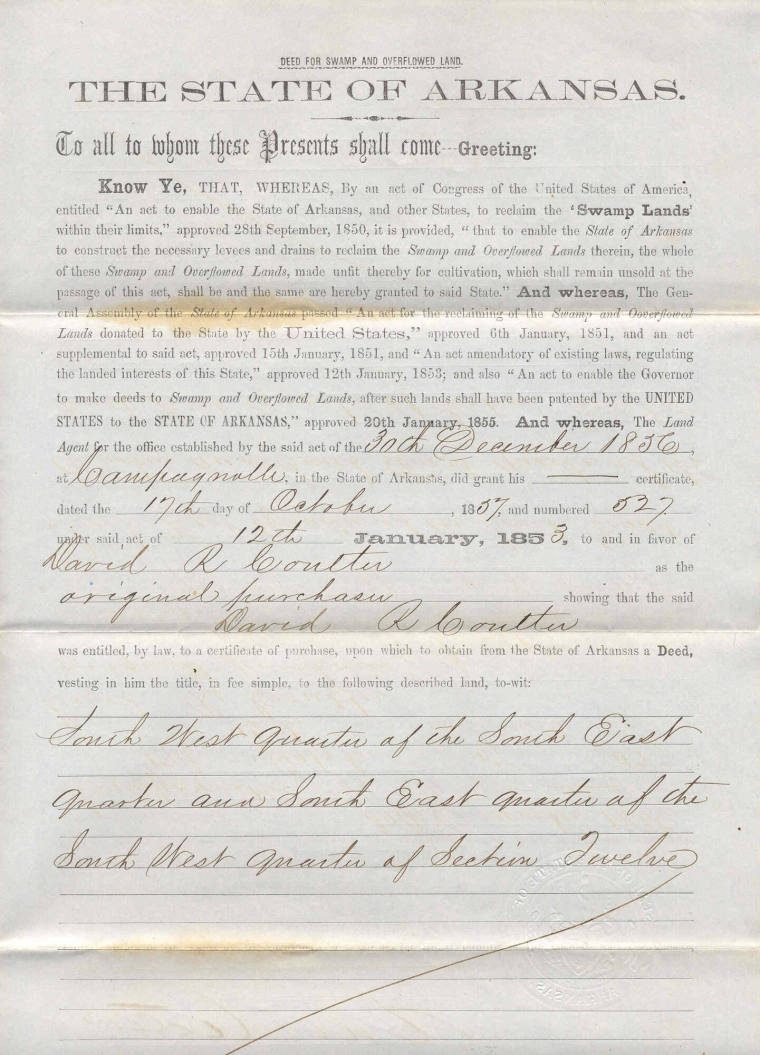 DEED FOR SWAMP AND OVERFLOWED LAND.
THE STATE OF ARKANSAS.
To all to whom these Presents shall come---Greeting:
Know Ye, THAT, WHEREAS, By an act of Congress of the United States of America,
entitled "An act to enable the State of Arkansas, and other States, to reclaim the 'Swamp Lands'
within their limits," approved 28th September, 1850, it is provided, "that to enable the State of Arkansas
to construct the necessary levees and drains to reclaim the Swamp and Overflowed Lands therein, the whole
of these Swamp and Overflowed Lands, made unfit thereby for cultivation, which shall remain unsold at the
passage of this act, shall be and the same are hereby granted to said State." And whereas, The Gen-
eral Assembly of the State of Arkansas passed "An act for the reclaiming of the Swamp and Ooverflowed
Lands donated to the State by the United States," approved 6th January, 1851, and an act
supplemental to said act, approved 15th January, 1851, and "An act amendatory of existing laws, regulating
the landed interests of this State," approved 12th January, 1853; and also "An act to enable the Governor
to make deeds to Swamp and Overflowed Lands, after such lands shall have been patented by the UNITED
STATES to the STATE OF ARKANSAS," approved 20th January, 1855. And whereas, The Land
Agent for the office established by the said act of the 30th December 1856,
at Campagnolle, in the State of Arkansas, did grant his certificate,
dated the 17th day of October, 1857, and numbered 527
under said act of 12th January, 1853, to and in favor of
David R Coulter as the
original purchaser showing that the said
David R Coulter
was entitled, by law, to a certificate of purchase, upon which to obtain from the State of Arkansas a Deed,
vesting in him the title, in fee simple, to the following described land, to-wit:
South West quarter of the South East
quarter and South East quarter of the
South West quarter of Section Twelve
ARKANSAS